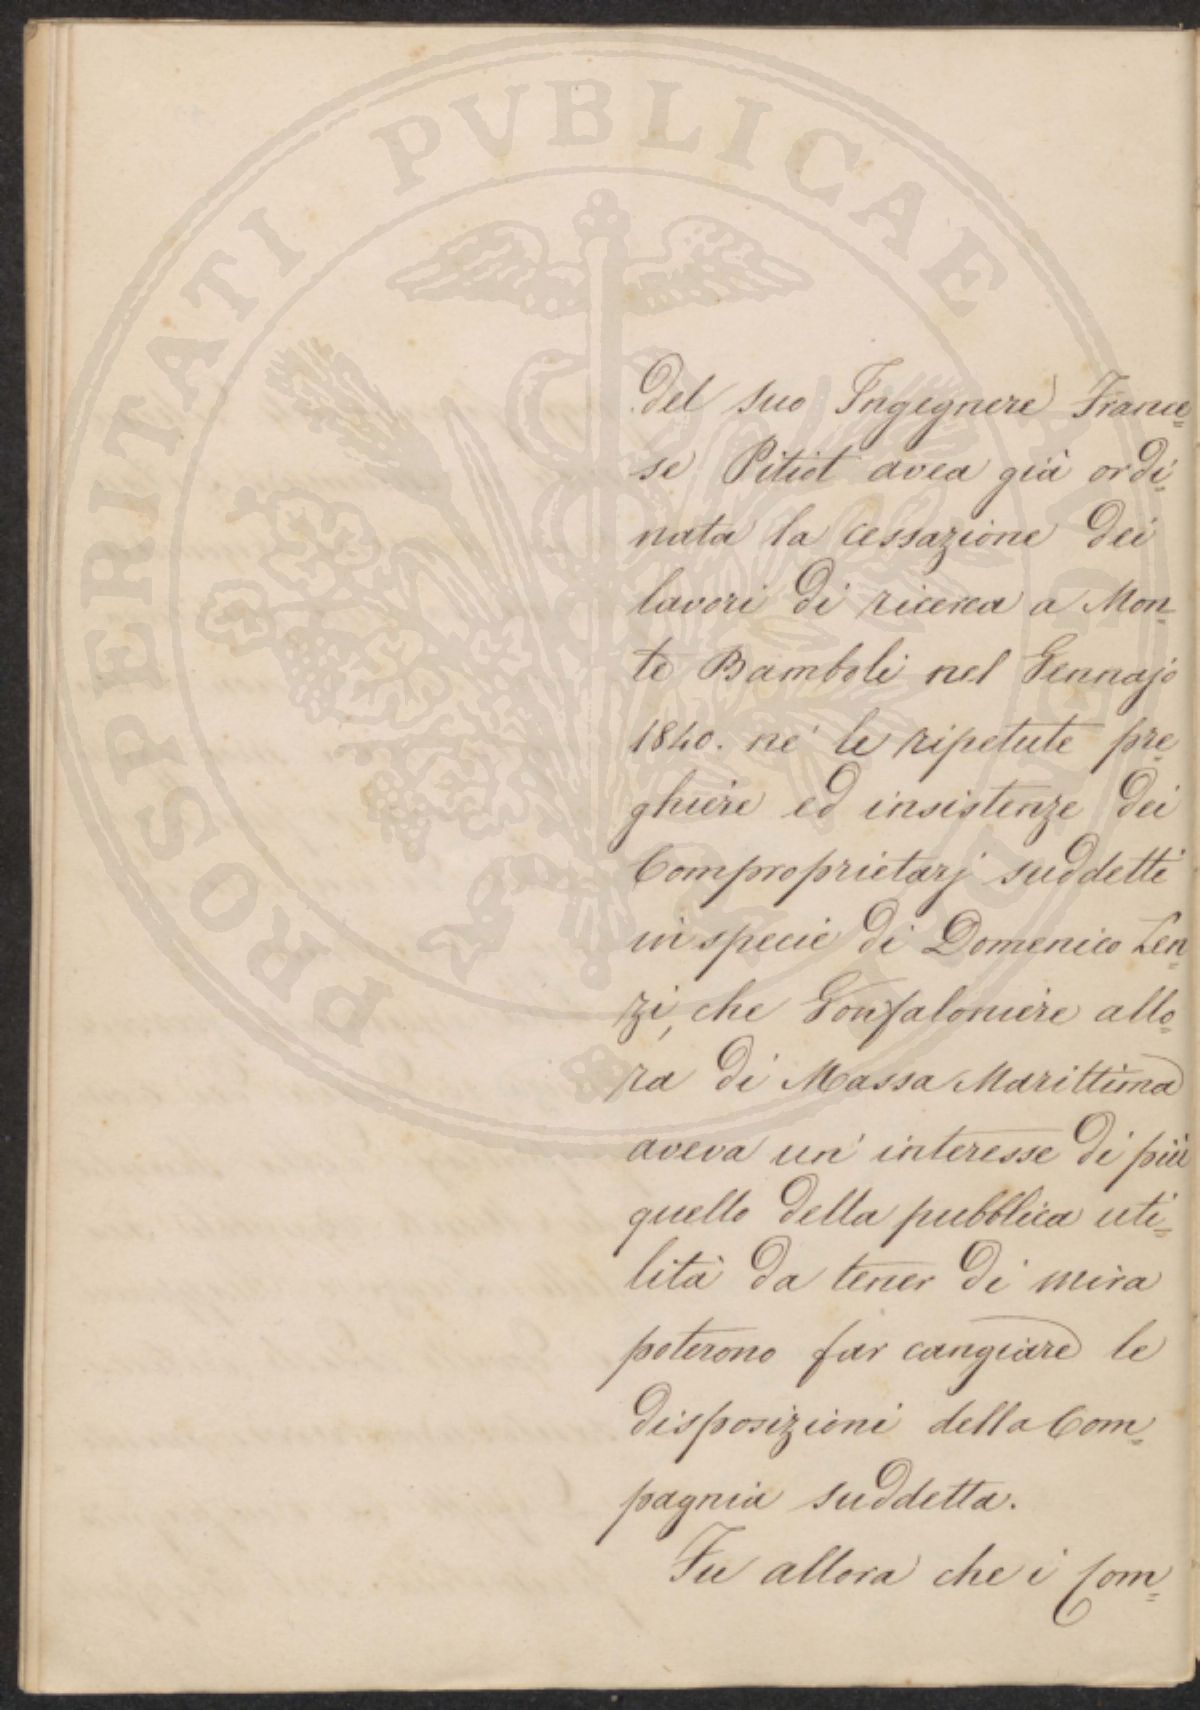 PROSPERITATI PVBLICAE
del suo Ingegnere France=
se Pitiot avea già ordi=
nata la cessazione dei
lavori di ricerca a Mon=
te Bamboli nel Gennajo
1840. ne' le ripetute pre=
ghiere ed insistenze dei
Comproprietarj suddetti
in specie di Domenico Len=
zi, che Gonfaloniere allo=
ra di Massa Marittima
aveva un' interesse di più
quello della pubblica uti=
lità da tener di mira
poterono far cangiare le
disposizioni della Com=
pagnia suddetta.
Fu allora che i Com=